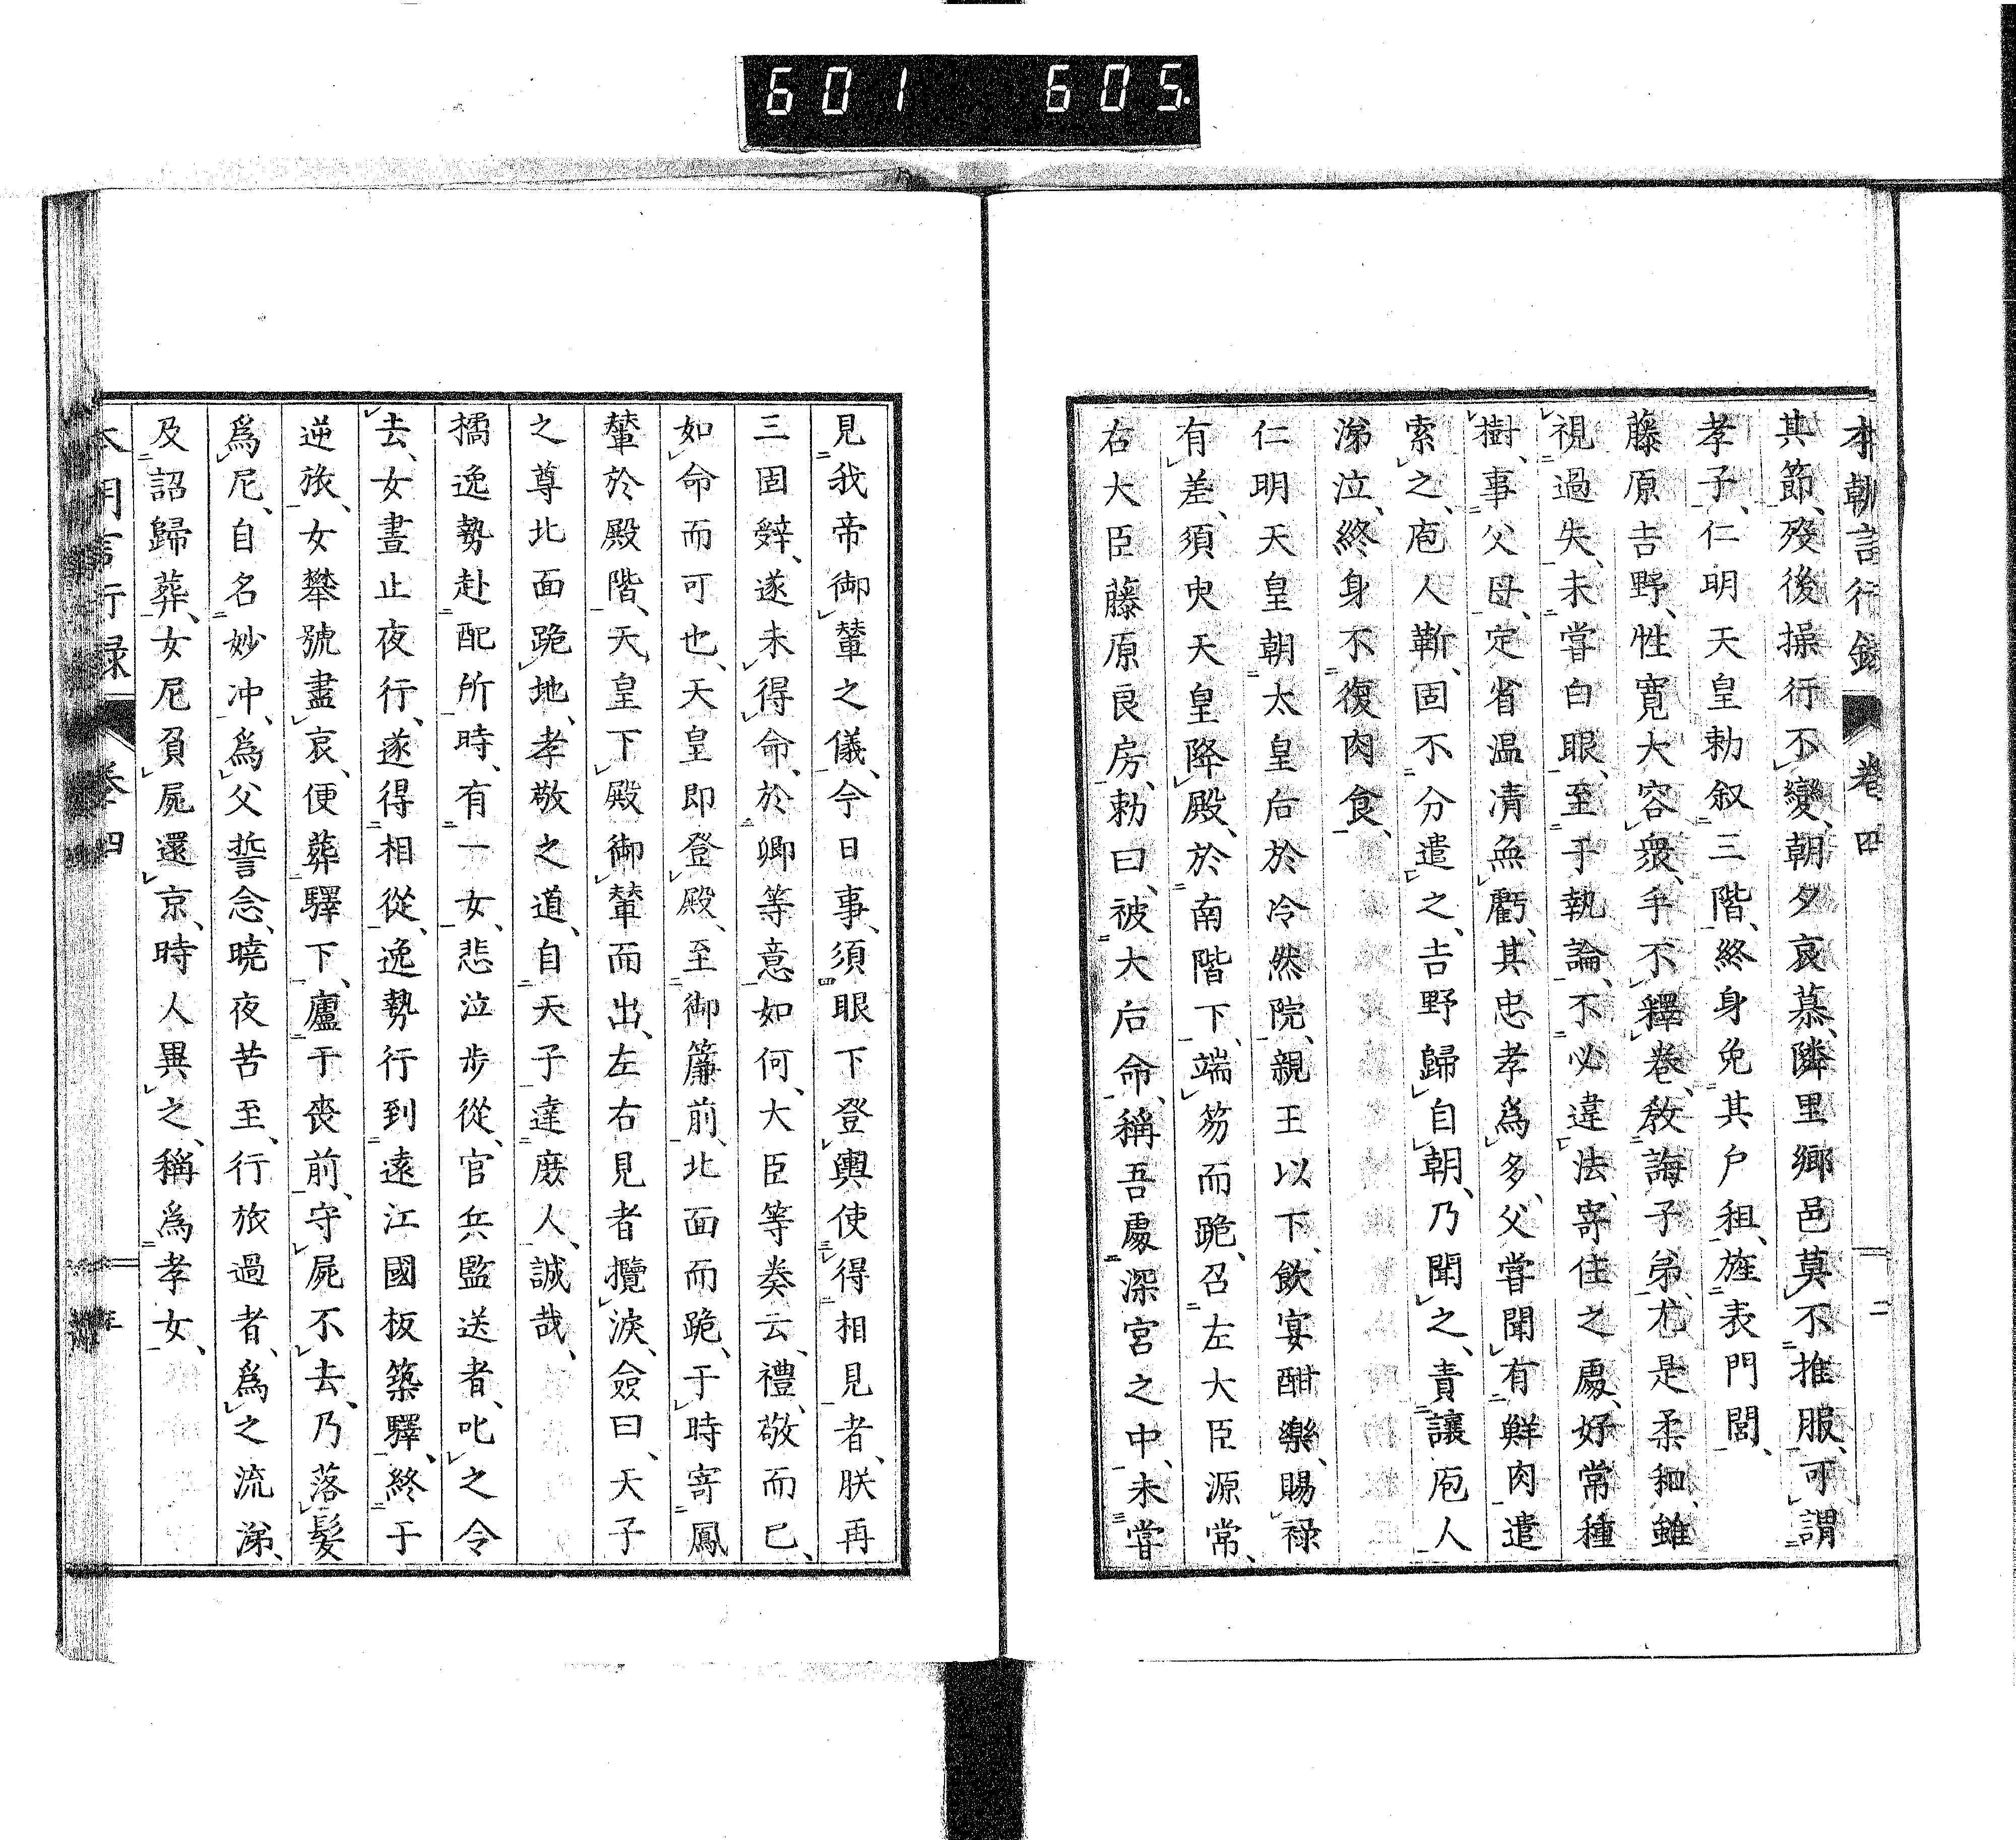 601 605.
本朝言行錄 卷四 二
其節、歿後操行不變、朝夕哀慕、隣里鄉邑莫不推服、可謂
孝子、仁明天皇勅叙三階、終身免其戶租、旌表門閭、
藤原吉野、性寬大容衆、手不釋卷、敎誨子弟、尤是柔和、雖
視過失、未嘗白眼、至于執論、不必違法、寄住之處、好常種
樹、事父母、定省温凊無虧、其忠孝爲多、父嘗聞有鮮肉遣
索之、庖人靳固不分遣之、吉野歸自朝、乃聞之、責讓庖人
涕泣、終身不復肉食、
仁明天皇朝太皇后於冷然院、親王以下、飲宴酣樂、賜祿
有差、須臾天皇降殿、於南階下、端笏而跪、召左大臣源常、
右大臣藤原良房、勅曰、被大后命、稱吾處深宮之中、未嘗
見我帝御輦之儀、今日事、須眼下登輿使得相見者、朕再
三固辭、遂未得命、於卿等意如何、大臣等奏云、禮敬而已、
如命而可也、天皇即登殿、至御簾前、北面而跪、于時寄鳳
輦於殿階、天皇下殿御輦而出、左右見者攬淚、僉曰、天子
之尊北面跪地、孝敬之道、自天子達庶人、誠哉、
橘逸勢赴配所時、有一女、悲泣步從、官兵監送者、叱之令
去、女晝止夜行、遂得相從、逸勢行到遠江國板築驛、終于
逆旅、女攀號盡哀、便葬驛下、廬于喪前、守屍不去、乃落髮
爲尼、自名妙冲、爲父誓念、曉夜苦至、行旅過者、爲之流涕、
及詔歸葬、女尼負屍還京、時人異之、稱爲孝女、
本朝言行錄 卷四